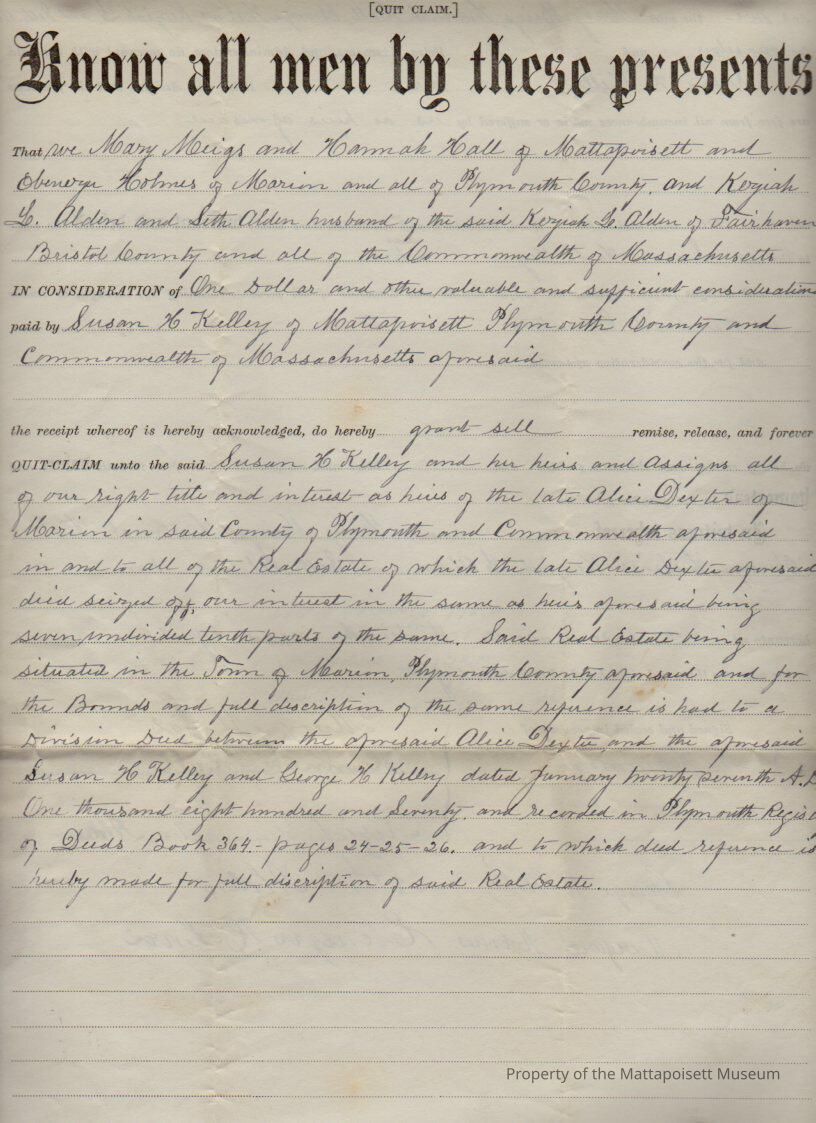 [QUIT CLAIM.]
Know all men by these presents
That we Mary Meigs and Hannah Hall of Mattapoisett and
Ebenezer Holmes of Marion and all of Plymouth County. and Keziah
L. Alden and Seth Alden husband of the said Keziah L. Alden of Fairhaven
Bristol County and all of the Commonwealth of Massachusetts
IN CONSIDERATION of One Dollar and other valuable and sufficient consideration
paid by Susan H Kelley of Mattapoisett Plymouth County and
Commonwealth of Massachusetts aforesaid
the receipt whereof is hereby acknowledged, do hereby grant sell remise, release, and forever
QUIT-CLAIM unto the said Susan H Kelley and her heirs and Assigns all
of our right title and interest as heirs of the late Alice Dexter of
Marion in said County of Plymouth and Commonwealth aforesaid
in and to all of the Real Estate of which the late Alice Dexter aforesaid
died seized of, our interest in the same as heirs aforesaid being
seven undivided tenth parts of the same. Said Real Estate being
situated in the Town of Marion, Plymouth County aforesaid and for
the Bounds and full discription of the same reference is had to a
Division Deed between the aforesaid Alice Dexter and the aforesaid
Susan H Kelley and George H Kelley dated January twenty seventh A.D
One thousand eight hundred and Seventy. and recorded in Plymouth Regist
of Deeds Book 364 - pages 24-25-26. and to which deed reference is
hereby made for full discription of said Real Estate.
Property of the Mattapoisett Museum